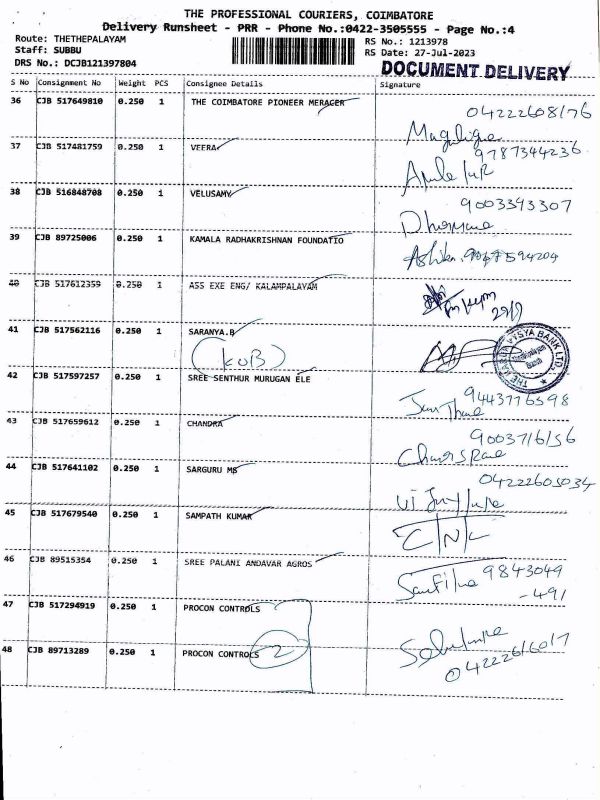 THE PROFESSIONAL COURIERS, COIMBATORE
Delivery Runsheet - PRR - Phone No.:0422-3505555 - Page No.:4
Route: THETHEPALAYAM RS No.: 1213978
Staff: SUBBU RS Date: 27-Jul-2023
DRS No.: DCJB121397804 DOCUMENT DELIVERY
S No Consignment No Weight PCS Consignee Details Signature
36 CJB 517649810 0.250 1 THE COIMBATORE PIONEER MERAGER 04222608176
37 CJB 517481759 0.250 1 VEERA 9787344236
38 CJB 516848708 0.250 1 VELUSAMY 9003393307
39 CJB 89725006 0.250 1 KAMALA RADHAKRISHNAN FOUNDATIO
40 CJB 517612359 0.250 1 ASS EXE ENG/ KALAMPALAYAM
41 CJB 517562116 0.250 1 SARANYA.B
(KVB) THE KARUR VYSYA BANK LTD.
42 CJB 517597257 0.250 1 SREE SENTHUR MURUGAN ELE 9443776598
43 CJB 517659612 0.250 1 CHANDRA 9003716156
44 CJB 517641102 0.250 1 SARGURU MS 04222605034
45 CJB 517679540 0.250 1 SAMPATH KUMAR
46 CJB 89515354 0.250 1 SREE PALANI ANDAVAR AGROS 9843049
-491
47 CJB 517294919 0.250 1 PROCON CONTROLS
48 CJB 89713289 0.250 1 PROCON CONTROLS 2 04222616017